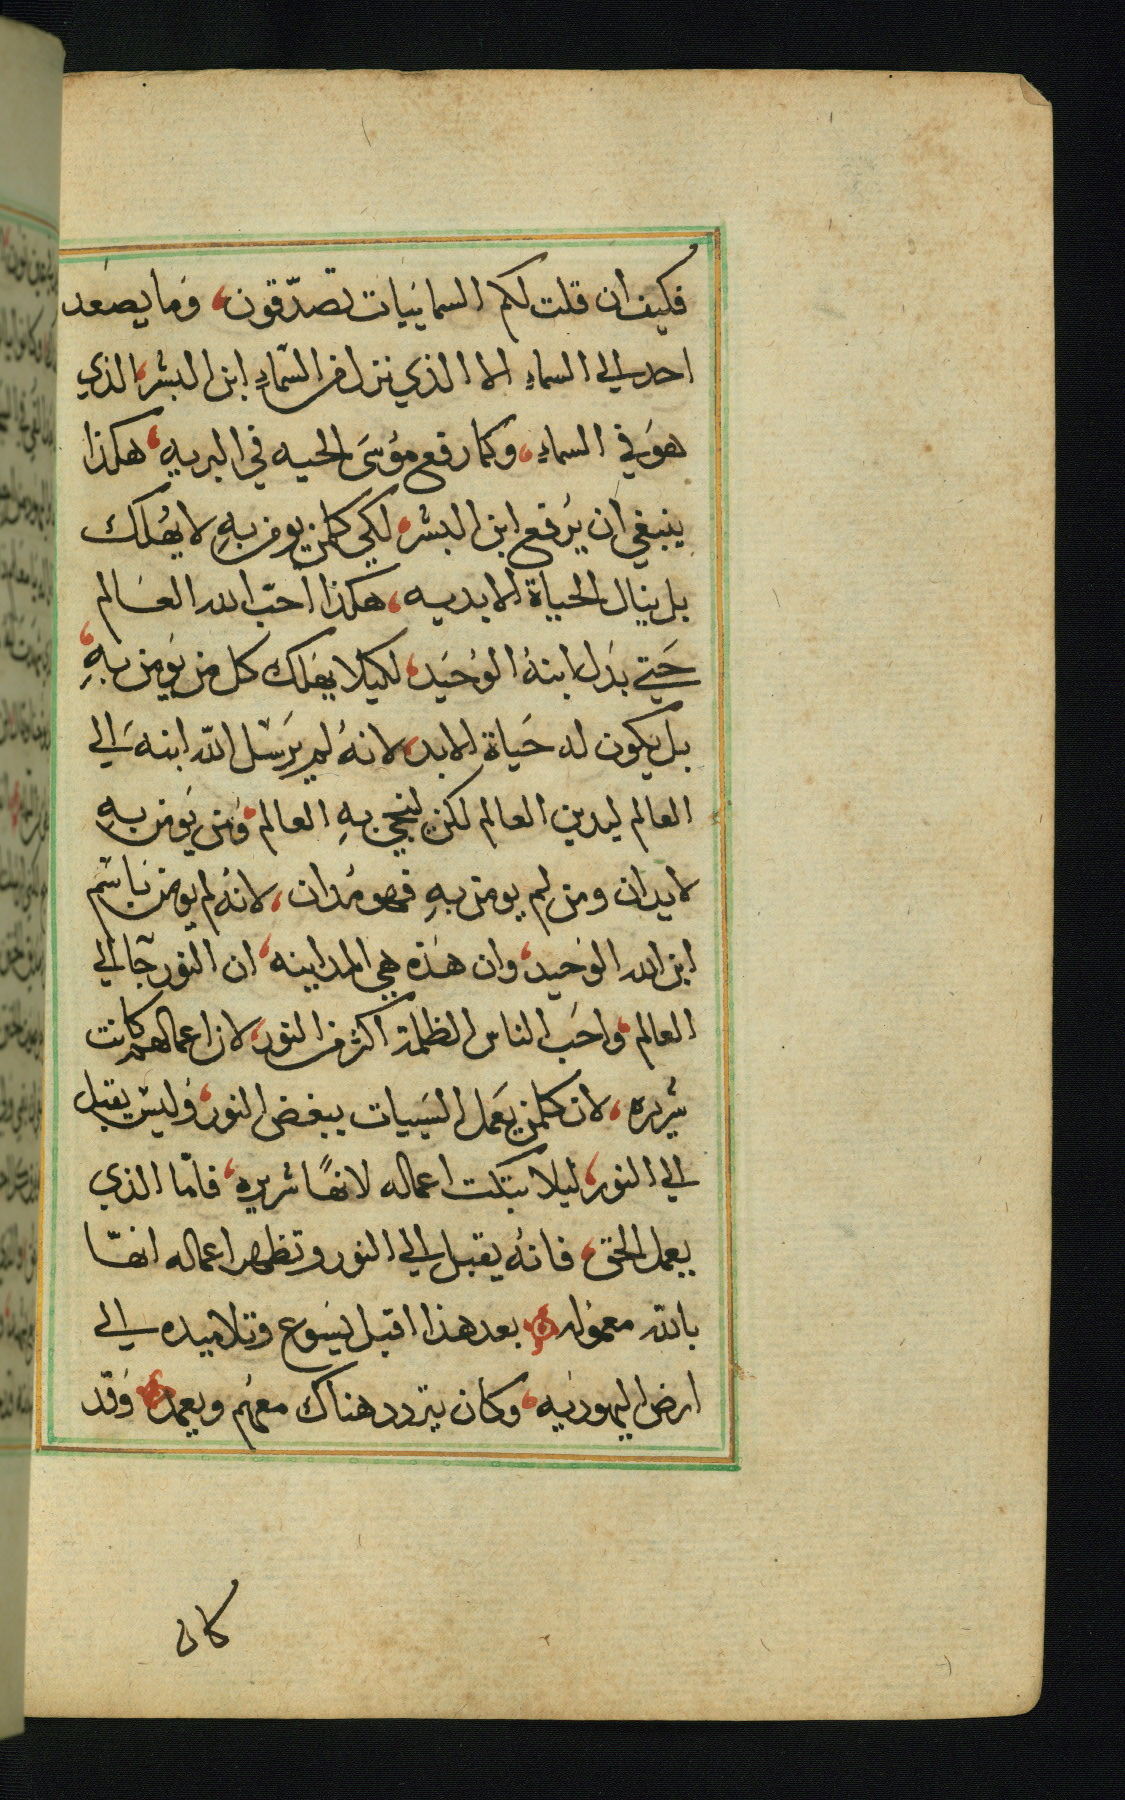 فكيف ان قلت لكم السمايّيات تصدّقون، وما يصعد
احد الي السماءِ الا الذي نزل من السّماءِ ابن البشر، الذي
هوَ في السماءِ، وكما رفع موُسَى الحيه في البريهِ، هكذا
ينبغي ان يُرفع ابن البشر، لكي كلمن يومن بهِ لا يهُلك
بل ينال الحياة الابديه، هكذا احبّ الله العَالم
حَتي بذل ابنهُ الوُحيَد، لكيلا يهَلك كل من يوُمِن بهِ،
بل يكون له حَياة الابد، لانهُ لم يرَسل اللّه ابنهَ الي
العالم ليدين العالم لكن لينجي بهِ العالم، ومن يوَمن بهِ
لا يدان ومن لم يومن بهِ فهو مُدان، لانهُ لم يوُمن باسم
ابن الله الوَحيد، وان هذه هي المداينه، ان النور جآ الي
العالم، واحَب الناس الظلمة اكثر من النور، لان اعمالهم كانت
شريره، لان كلمن يعَمل السَييات يبغض النور، وَليس يقبل
الي النور، ليلا تبكت اعماله لانهاً شريره، فامّا الذي
يعمل الحق، فانهُ يقبل الي النور وتظهر اعماله انهّا
باللّه معموُله بعد هذا اقبل يسَوع وتلاميده الي
ارض اليهوديَه، وكان يتردد هناك معهُم ويعمد وَقد
كان